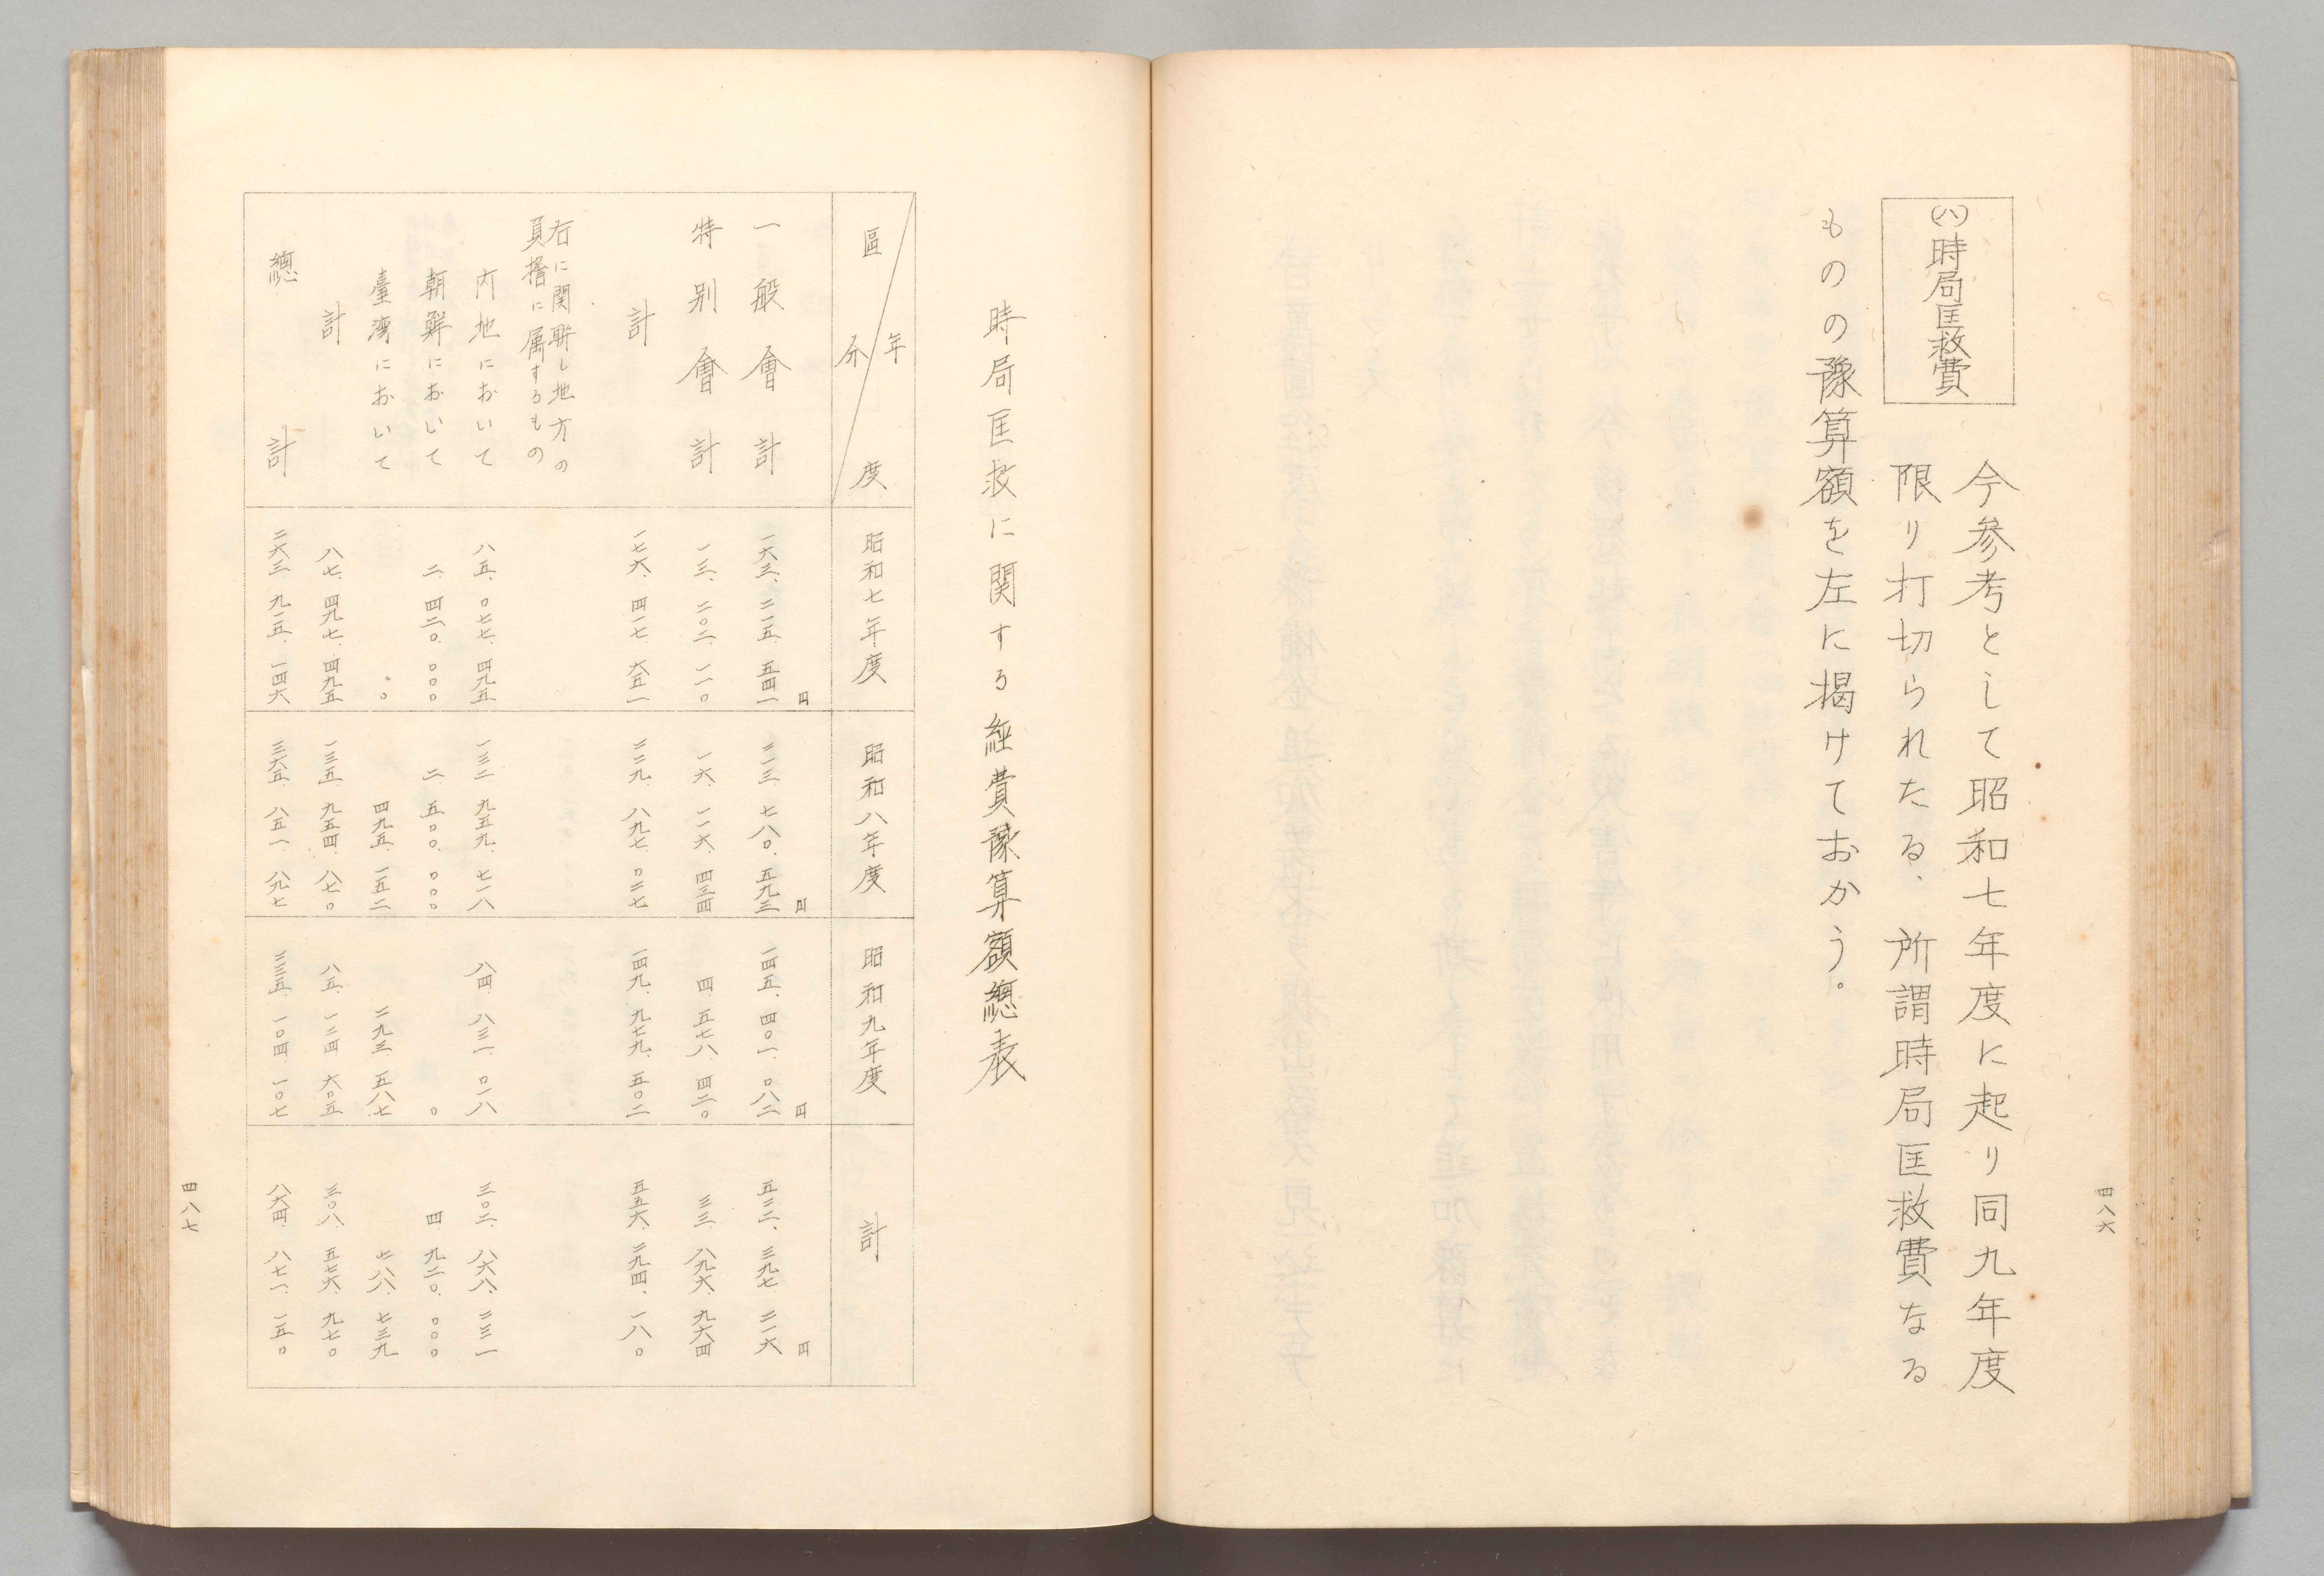 (八)時局匡救費
今参考として昭和七年度に起り同九年度
限り打切られたる、所謂時局匡救費なる
ものの豫算額を左に掲けておかう。
四八六
時局匡救に関する経費豫算額總表
年度 區分 昭和七年度 昭和八年度 昭和九年度 計
円 円 円 円
一般會計 一六三、二一五、五四一 二一三、七八〇、五九三 一四五、四〇一、〇八二 五二二、三九七、二一六
特別會計 一三、二〇二、一一〇 一六、一一六、四三四 四、五七八、四二〇 三三、八九六、九六四
計 一七六、四一七、六五一 二二九、八九七、〇二七 一四九、九七九、五〇二 五五六、二九四、一八〇
右に関聯し地方の
負擔に属するもの
内地において 八五、〇七七、四九五 一三二、九五九、七一八 八四、八三一、〇一八 三〇二、八六八、二三一
朝鮮において 二、四二〇、〇〇〇 二、五〇〇、〇〇〇 〇 四、九二〇、〇〇〇
臺湾において 〇 四九五、一五二 二九三、五八七 七八八、七三九
計 八七、四九七、四九五 一三五、九五四、八七〇 八五、一二四、六〇五 三〇八、五七六、九七〇
總計 二六三、九一五、一四六 三六五、八五一、八九七 二三五、一〇四、一〇七 八六四、八七一、一五〇
四八七